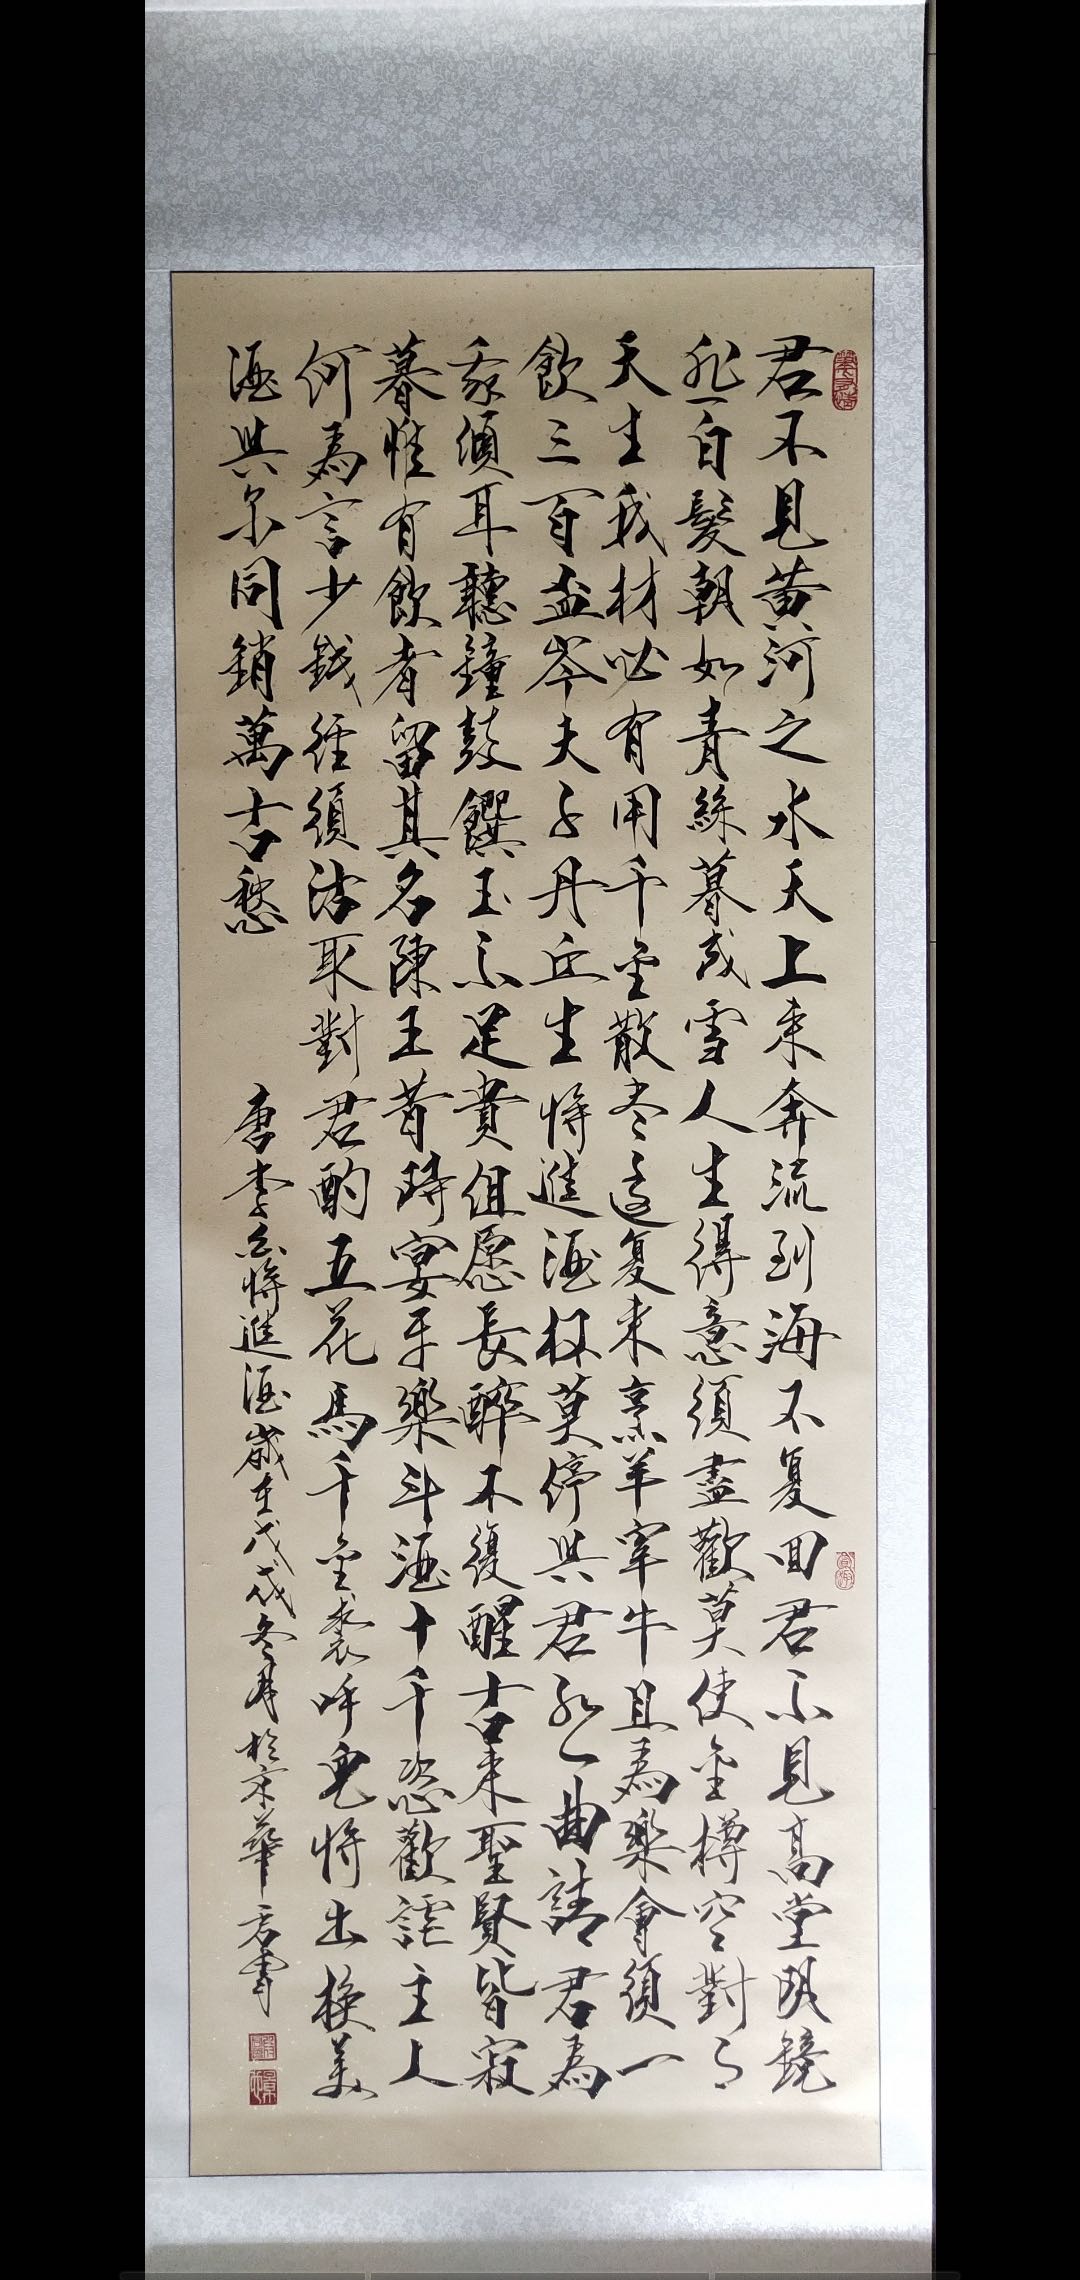 君不見黄河之水天上来奔流到海不复回君不見高堂明鏡
悲白髮朝如青絲暮成雪人生得意須盡歡莫使金樽空對月
天生我材必有用千金散尽還复来烹羊宰牛且為樂會須一
飲三百盃岑夫子丹丘生将進酒杯莫停與君歌一曲請君為
我傾耳聽鐘鼓饌玉不足貴但愿長醉不復醒古来聖賢皆寂
暮惟有飲者留其名陳王昔時宴平樂斗酒十千恣歡謔主人
何為言少錢径須沽取對君酌五花馬千金裘呼兒将出换美
酒與尔同銷萬古愁
唐李白将進酒歲在戊戌冬月於京華